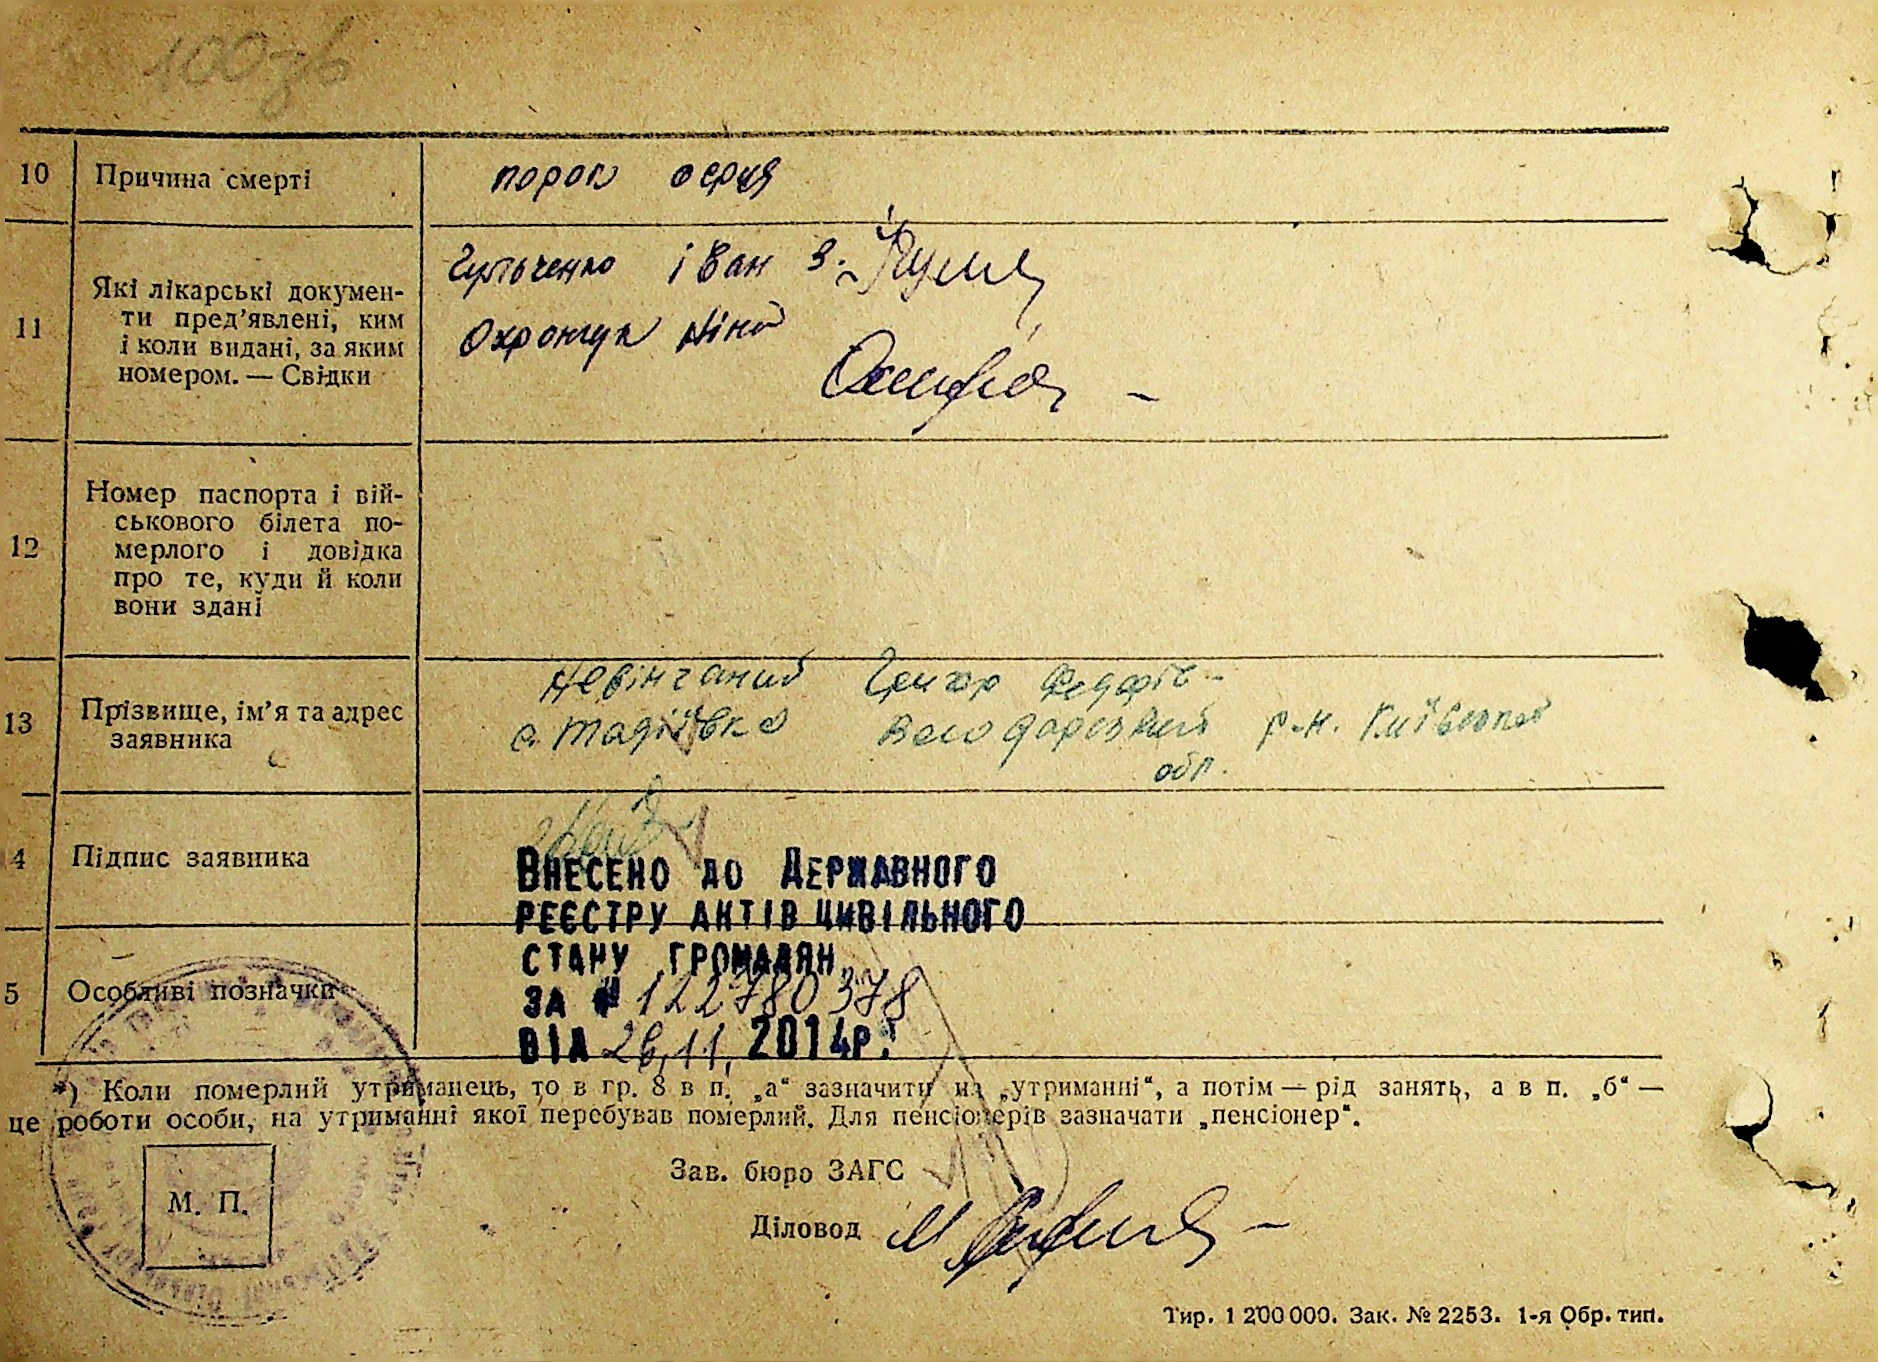 10 Причина смерті порок серця
11 Які лікарські докумен-
ти пред'явлені, ким
і коли видані, за яким
номером. — Свідки
іван З.
Ніна
12 Номер паспорта і вій-
ськового білета по-
мерлого і довідка
про те, куди й коли
вони здані
13 Прізвище, ім'я та адрес
заявника
Невінчаний
с. Тадіївка Володарський р-н. Київської
обл.
4 Підпис заявника
Внесено до Державного
реєстру актів цивільного
стану громадян
за № 122780378
від 26.11. 2014р.
5 Особливі позначки
*) Коли померлий утриманець, то в гр. 8 в п. „а“ зазначити на „утриманні“, а потім — рід занять, а в п. „б“ —
це роботи особи, на утриманні якої перебував померлий. Для пенсіонерів зазначати „пенсіонер“.
Зав. бюро ЗАГС
М. П.
Діловод
Тир. 1 200 000. Зак. № 2253. 1-я Обр. тип.